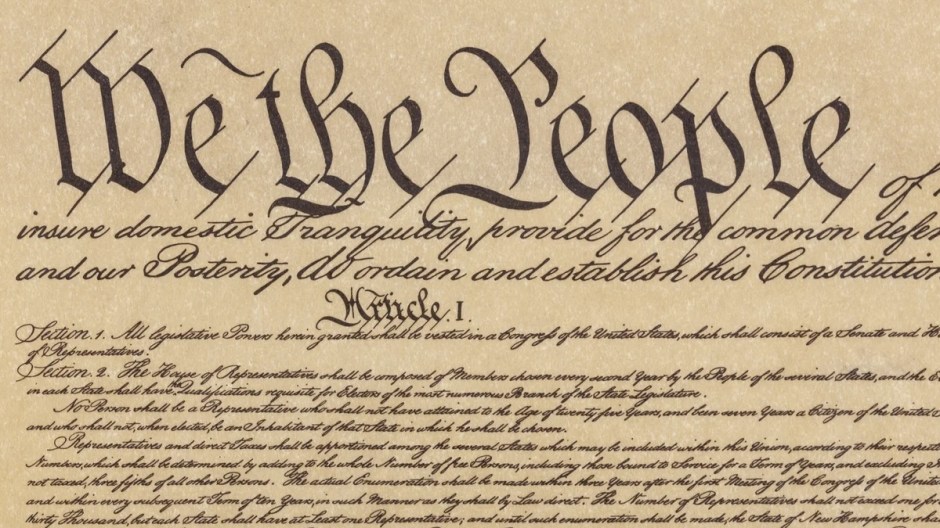 We the People of
insure domestic Tranquility, provide for the common defen
and our Posterity, do ordain and establish this Constitution
Article. I.
Section. 1. All legislative Powers herein granted shall be vested in a Congress of the United States, which shall consist of a Senate and H
of Representatives.
Section. 2. The House of Representatives shall be composed of Members chosen every second Year by the People of the several States, and the E
in each State shall have the Qualifications requisite for Electors of the most numerous Branch of the State Legislature.
No Person shall be a Representative who shall not have attained to the Age of twenty five Years, and been seven Years a Citizen of the United
and who shall not, when elected, be an Inhabitant of that State in which he shall be chosen.
Representatives and direct Taxes shall be apportioned among the several States which may be included within this Union, according to their respect
Numbers, which shall be determined by adding to the whole Number of free Persons, including those bound to Service for a Term of Years, and excluding
not taxed, three fifths of all other Persons. The actual Enumeration shall be made within three Years after the first Meeting of the Congress of the United
and within every subsequent Term of ten Years, in such Manner as they shall by Law direct. The Number of Representatives shall not exceed one for
thirty Thousand, but each State shall have at Least one Representative; and until such enumeration shall be made, the State of New Hampshire shall